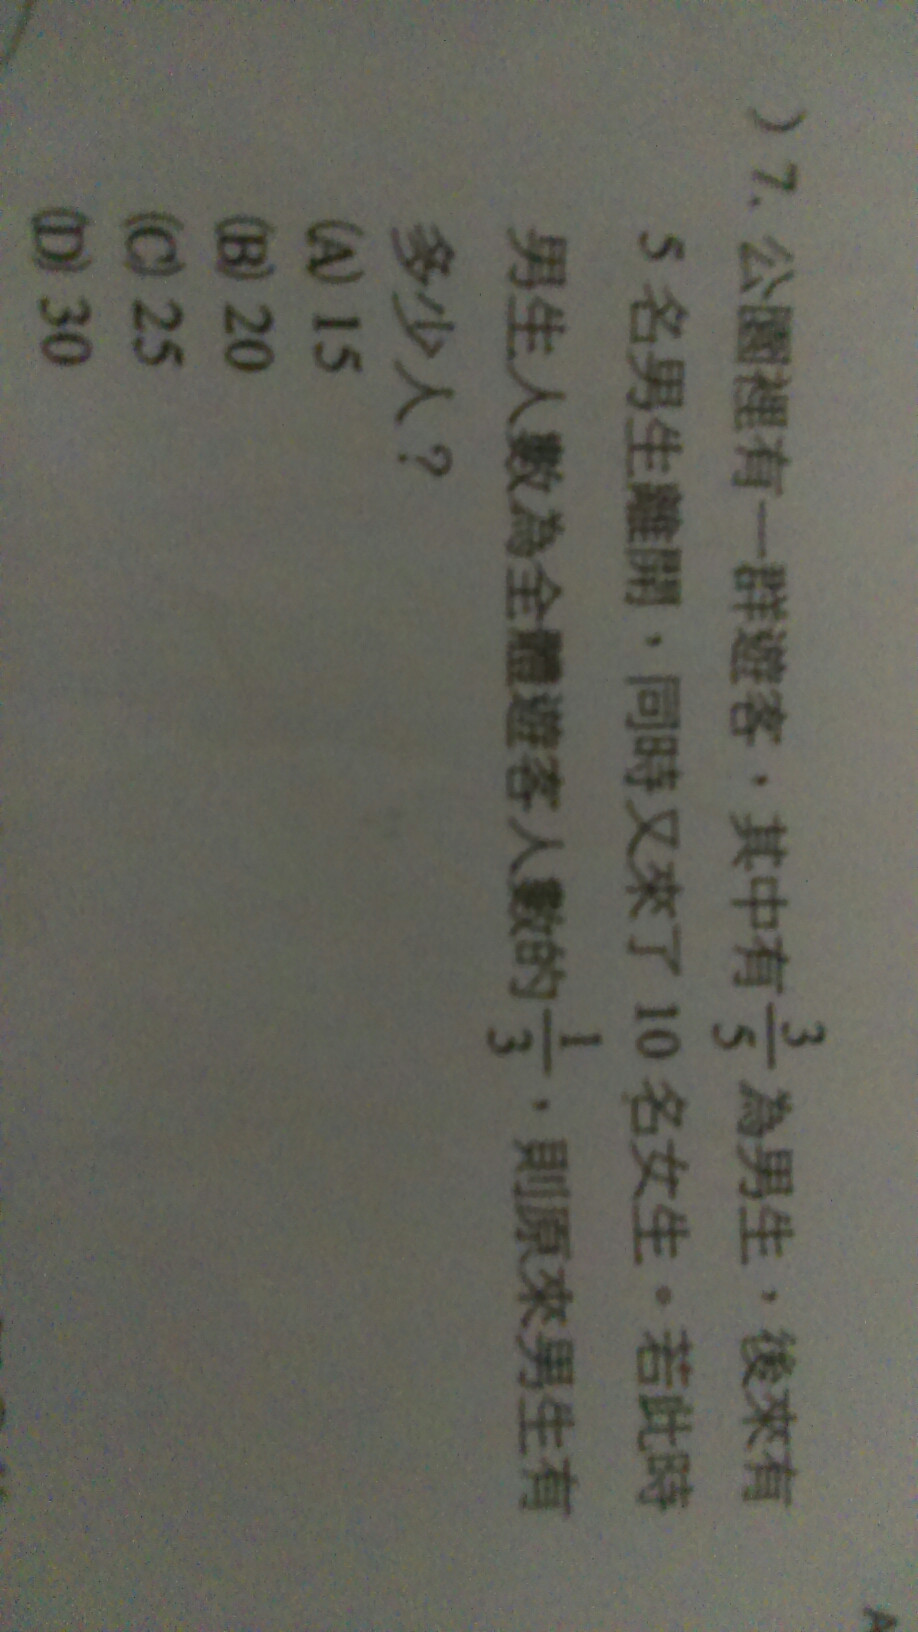 )7. 公園裡有一群遊客，其中有3/5為男生，後來有
5 名男生離開，同時又來了 10 名女生。若此時
男生人數為全體遊客人數的1/3，則原來男生有
多少人？
(A) 15
(B) 20
(C) 25
(D) 30
A